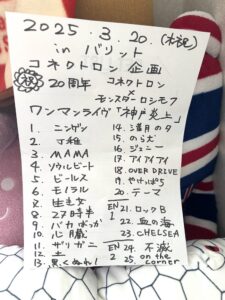 2025.3.20.(木祝)
in バリット
コネクトロン 企画
20周年 コネクトロン
×
モンスターロシモフ
ワンマンライヴ「神戸炎上」
1. ニンゲン
2. 丁稚
3. MAMA
4. ソウルビート
5. ビールス
6. モノラル
7. 生
8. 27時半
9. バカばっか
10. 心臓
11. ザリガニ
12. 土
13. 黒くぬれ!
14. 満月の夕
15. のら犬
16. ジェニー
17. アイアイアイ
18. OVER DRIVE
19. やけっぱち
20. テーマ
EN1
21. ロックB
22. 血の海
23. CHELSEA
EN2
24. 不滅
25. on the corner